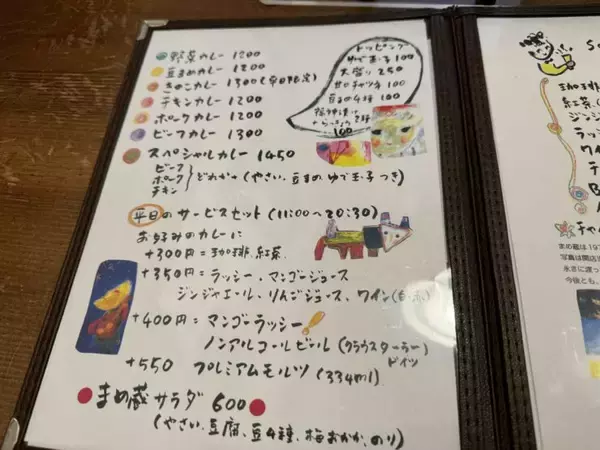 野菜カレー 1200
豆まめカレー 1200
きのこカレー 1300
チキンカレー 1200
ポークカレー 1200
ビーフカレー 1300
スペシャルカレー 1450
ビーフ
ポーク
チキン
どれか+(やさい、豆まめ、ゆで玉子つき)
トッピング
ゆで玉子 100
大盛り 250
甘口チャツネ 100
豆4種 100
福神漬け
+らっきょう
100
平日のサービスセット(11:00〜20:30)
お好みのカレーに
+300円=珈琲、紅茶
+350円=ラッシー・マンゴージュース
ジンジャエール、りんごジュース、ワイン(白・赤)
+400円=マンゴーラッシー!
ノンアルコールビール(クラウスターラー)
ドイツ
+550 プレミアムモルツ(334ml)
まめ蔵サラダ 600
(やさい、豆腐、豆4種、梅おかか、のり)
珈琲
紅茶
ジンジ
りんご
ラッシ
マン
ワイン
まめ蔵は197
写真は開店当
永きに渡っ
今後とも、